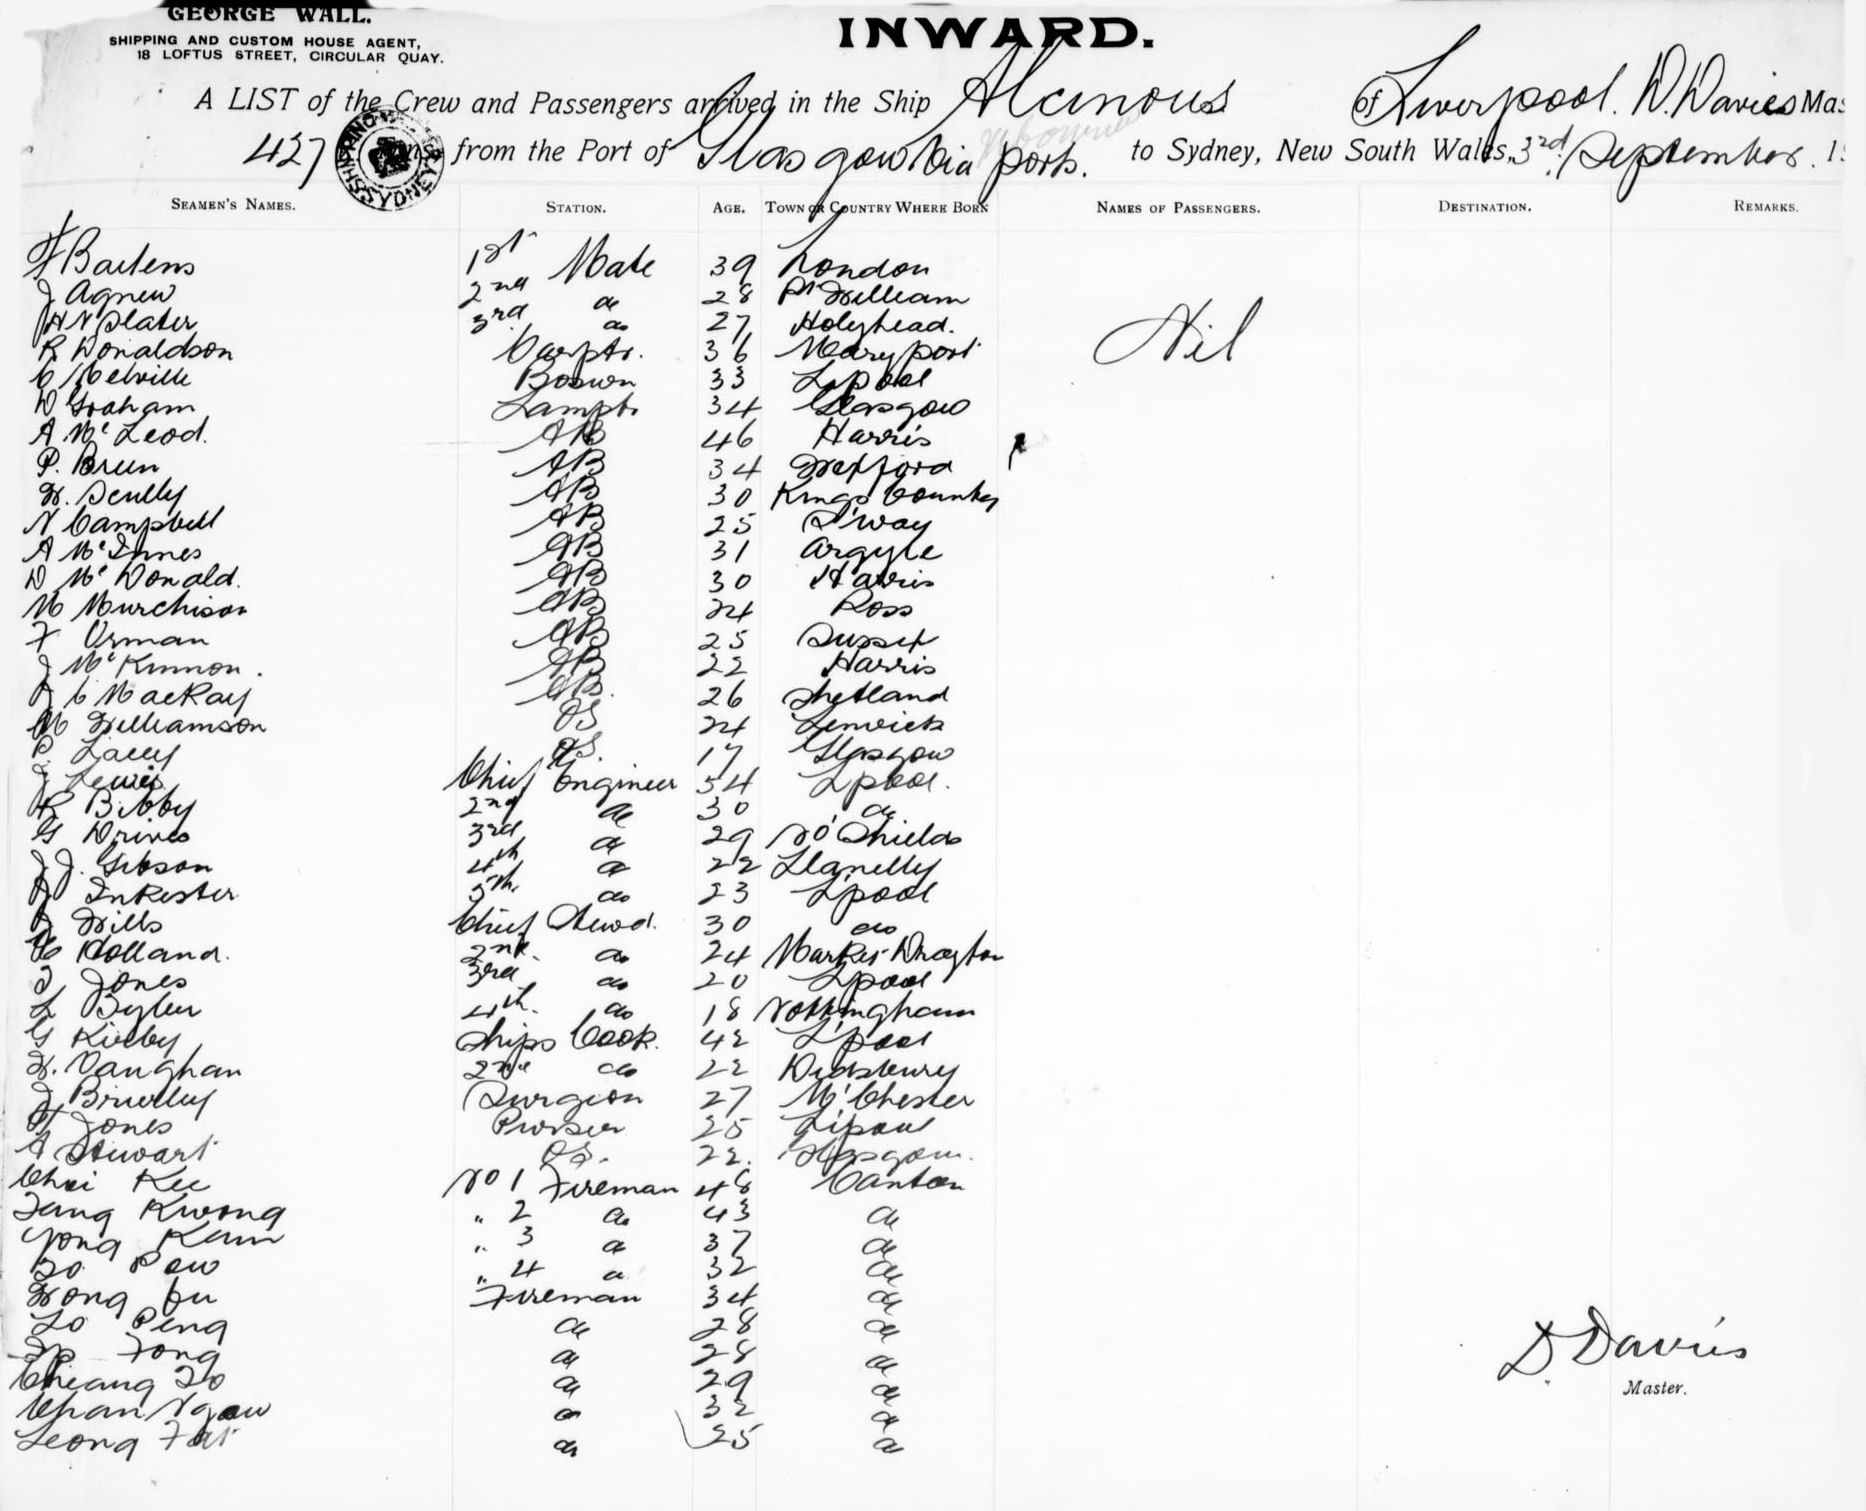 GEORGE WALL.
SHIPPING AND CUSTOM HOUSE AGENT,
18 LOFTUS STREET, CIRCULAR QUAY.
INWARD.
A LIST of the Crew and Passengers arrived in the Ship Alcinous of Liverpool. D. Davies Mas
427 from the Port of Glasgow via ports. to Sydney, New South Wales, 3rd September. 1
SEAMEN'S NAMES. STATION. AGE. TOWN OR COUNTRY WHERE BORN NAMES OF PASSENGERS. DESTINATION. REMARKS.
F Bartens 1st Mate 39 London
J Agnew 2nd do 28 Ft William
H N Slater 3rd do 27 Holyhead.
Nil
R Donaldson Carptr. 36 Maryport
C Melville Boswn 33 Lpool
D Graham Lampts 34 Glasgow
A McLeod. AB 46 Harris
P. Breen AB 34 Wexford
W. Scully AB 30 Kings County
N Campbell AB 25 G'way
A McInnes AB 31 Argyle
D McDonald. AB 30 Harris
M Murchison AB 24 Ross
F Orman AB 25 Sussex
J McKinnon. AB 22 Harris
J C MacKay AB. 26 Shetland
M Williamson OS 24 Lerwick
P. Lacey OS. 17 Glasgow
J Lewis Chief Engineer 54 Lpool.
R Bibby 2nd do 30 do
G 3rd do 29 No Shields
J J. Gibson 4th do 22 Llanelly
J Inkester 5th. do 23 L'pool
J Wills Chief Stewd. 30 do
Holland. 2nd. do 24 Market Drayton
J Jones 3rd do 20 Lpool
L 4th. do 18 Nottingham
G Kirby Ships Cook. 42 L'pool
W. Vaughan 2nd do 22 Didsbury
J Brierley Surgeon 27 M'Chester
H Jones Purser 25 L'pool
A Stewart OS. 22. Glasgow.
Choi Kee No 1 Fireman 48 Canton
Tang Kwong " 2 do 43 do
Yong Kum " 3 do 37 do
So Pow " 4 do 32 do
Wong Fireman 34 do
Lo Peng do 28 do
Ip Fong do 28 do
Cheang So do 29 do
Chan Ngow do 32 do
Leong Fat do 25 do
D. Davies
Master.